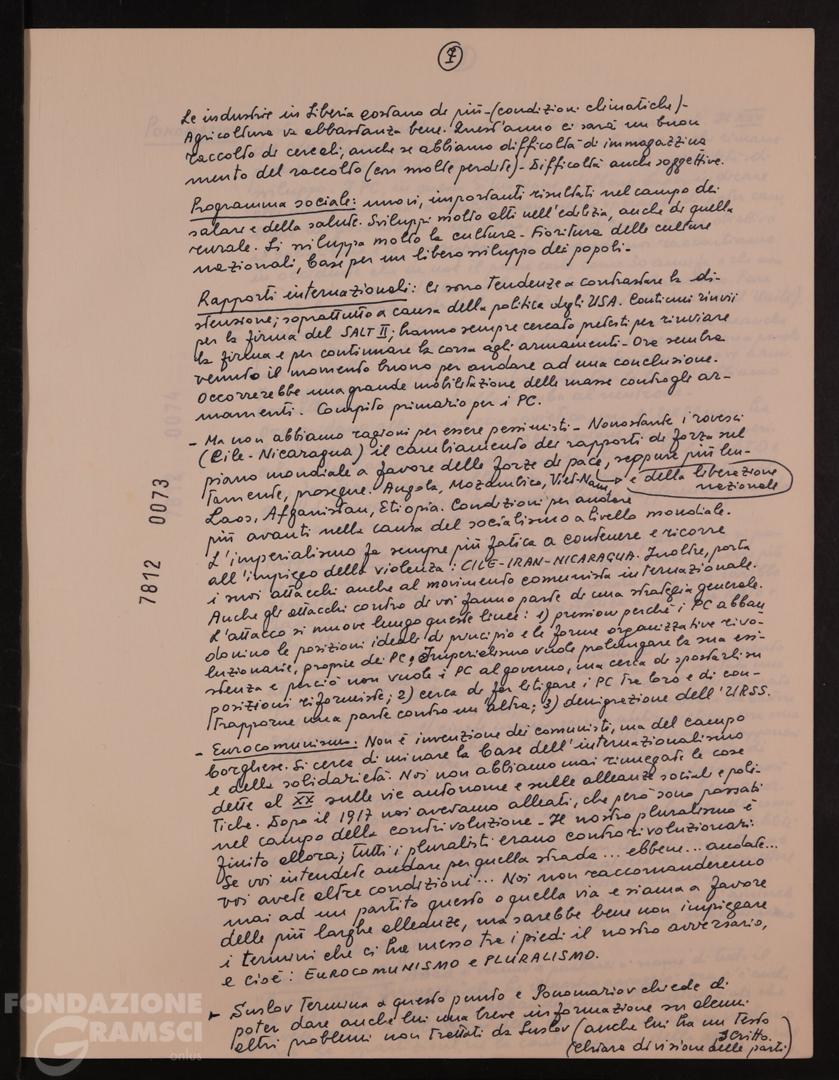 7
Le industrie in Siberia costano di più - (condizioni climatiche) -
Agricoltura va abbastanza bene. Quest'anno ci sarà un buon
raccolto di cereali, anche se abbiamo difficoltà di immagazzina
mento del raccolto (con molte perdite) - Difficoltà anche soggettive.
Programma sociale: nuovi, importanti risultati nel campo dei
salari e della salute. Sviluppi molto alti nell'edilizia, anche di quella
rurale. Si sviluppa molto la cultura - Fioritura delle culture
nazionali, base per un libero sviluppo dei popoli -
Rapporti internazionali: Ci sono tendenze a contrastare la di-
stensione; soprattutto a causa della politica degli USA. Continui rinvii
per la firma del SALT II; hanno sempre cercato pretesti per rinviare
la firma e per continuare la corsa agli armamenti - Ora sembra
venuto il momento buono per andare ad una conclusione.
Occorrerebbe una grande mobilitazione delle masse contro gli ar-
mamenti. Compito primario per i PC.
- Ma non abbiamo ragioni per essere pessimisti - Nonostante i rovesci
(Cile - Nicaragua) il cambiamento dei rapporti di forza sul
piano mondiale a favore delle forze di pace, seppure più len-
tamente, prosegue. Angola, Mozambico, Viet-Nam, e della liberazione
nazionale
Laos, Afganistan, Etiopia. Condizioni per andare
più avanti nella causa del socialismo a livello mondiale.
L'imperialismo fa sempre più fatica a contenere e ricorre
all'impiego della violenza: CILE-IRAN-NICARAGUA. Inoltre, porta
i suoi attacchi anche al movimento comunista internazionale.
Anche gli attacchi contro di voi fanno parte di una strategia generale.
L'attacco si muove lungo queste linee: 1) pressioni perché i PC abban
donino le posizioni ideali di principio e le forme organizzative rivo-
luzionarie, proprie dei PC. Imperialismo vuole prolungare la sua esi-
stenza e perciò non vuole i PC al governo, ma cerca di spostarli su
posizioni riformiste; 2) cerca di far litigare i PC tra loro e di con-
trapporne una parte contro un'altra; 3) denigrazione dell'URSS.
- Eurocomunismo: Non è invenzione dei comunisti, ma del campo
borghese. Si cerca di minare la base dell'internazionalismo
e della solidarietà. Noi non abbiamo mai rinnegate le cose
dette al XX sulle vie autonome e sulle alleanze sociali e poli-
tiche. Dopo il 1917 noi avevamo alleati, che però sono passati
nel campo della controrivoluzione - Il nostro pluralismo è
finito allora; tutti i pluralisti erano controrivoluzionari.
Se voi intendete andare per quella strada... ebbene... andate...
voi avete altre condizioni... Noi non raccomanderemo
mai ad un partito questo o quella via e siamo a favore
delle più larghe alleanze, ma sarebbe bene non impiegare
i termini che ci ha messo tra i piedi il nostro avversario,
e cioè: EUROCOMUNISMO e PLURALISMO.
- Suslov termina a questo punto e Ponomariov chiede di
poter dare anche lui una breve informazione su alcuni
altri problemi non trattati da Suslov (anche lui ha un testo
scritto.
(chiara divisione delle parti)
7812 0073
FONDAZIONE
GRAMSCI
onlus